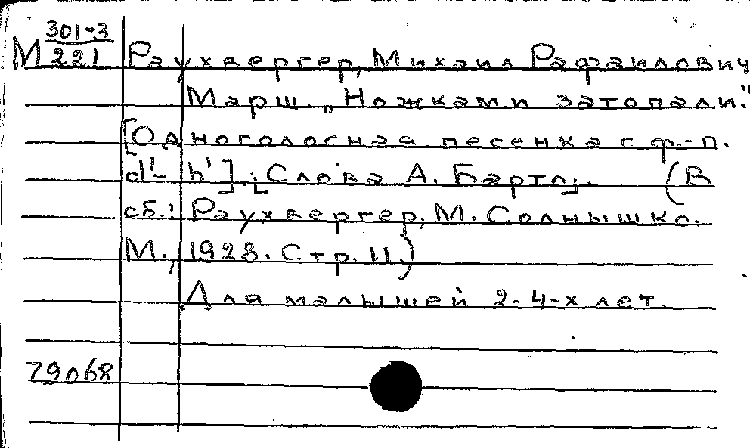 301-3
М 221 Раухвергер, Михаил Рафаилович
Марш „Ножками затопали."
[Одноголосная песенка с ф.-п.
d'- h'].; [Слова А. Барто]. (В
сб.: Раухвергер, М. Солнышко.
М., 1928. Стр. 11.)
Для малышей 2-4-х лет.
79068